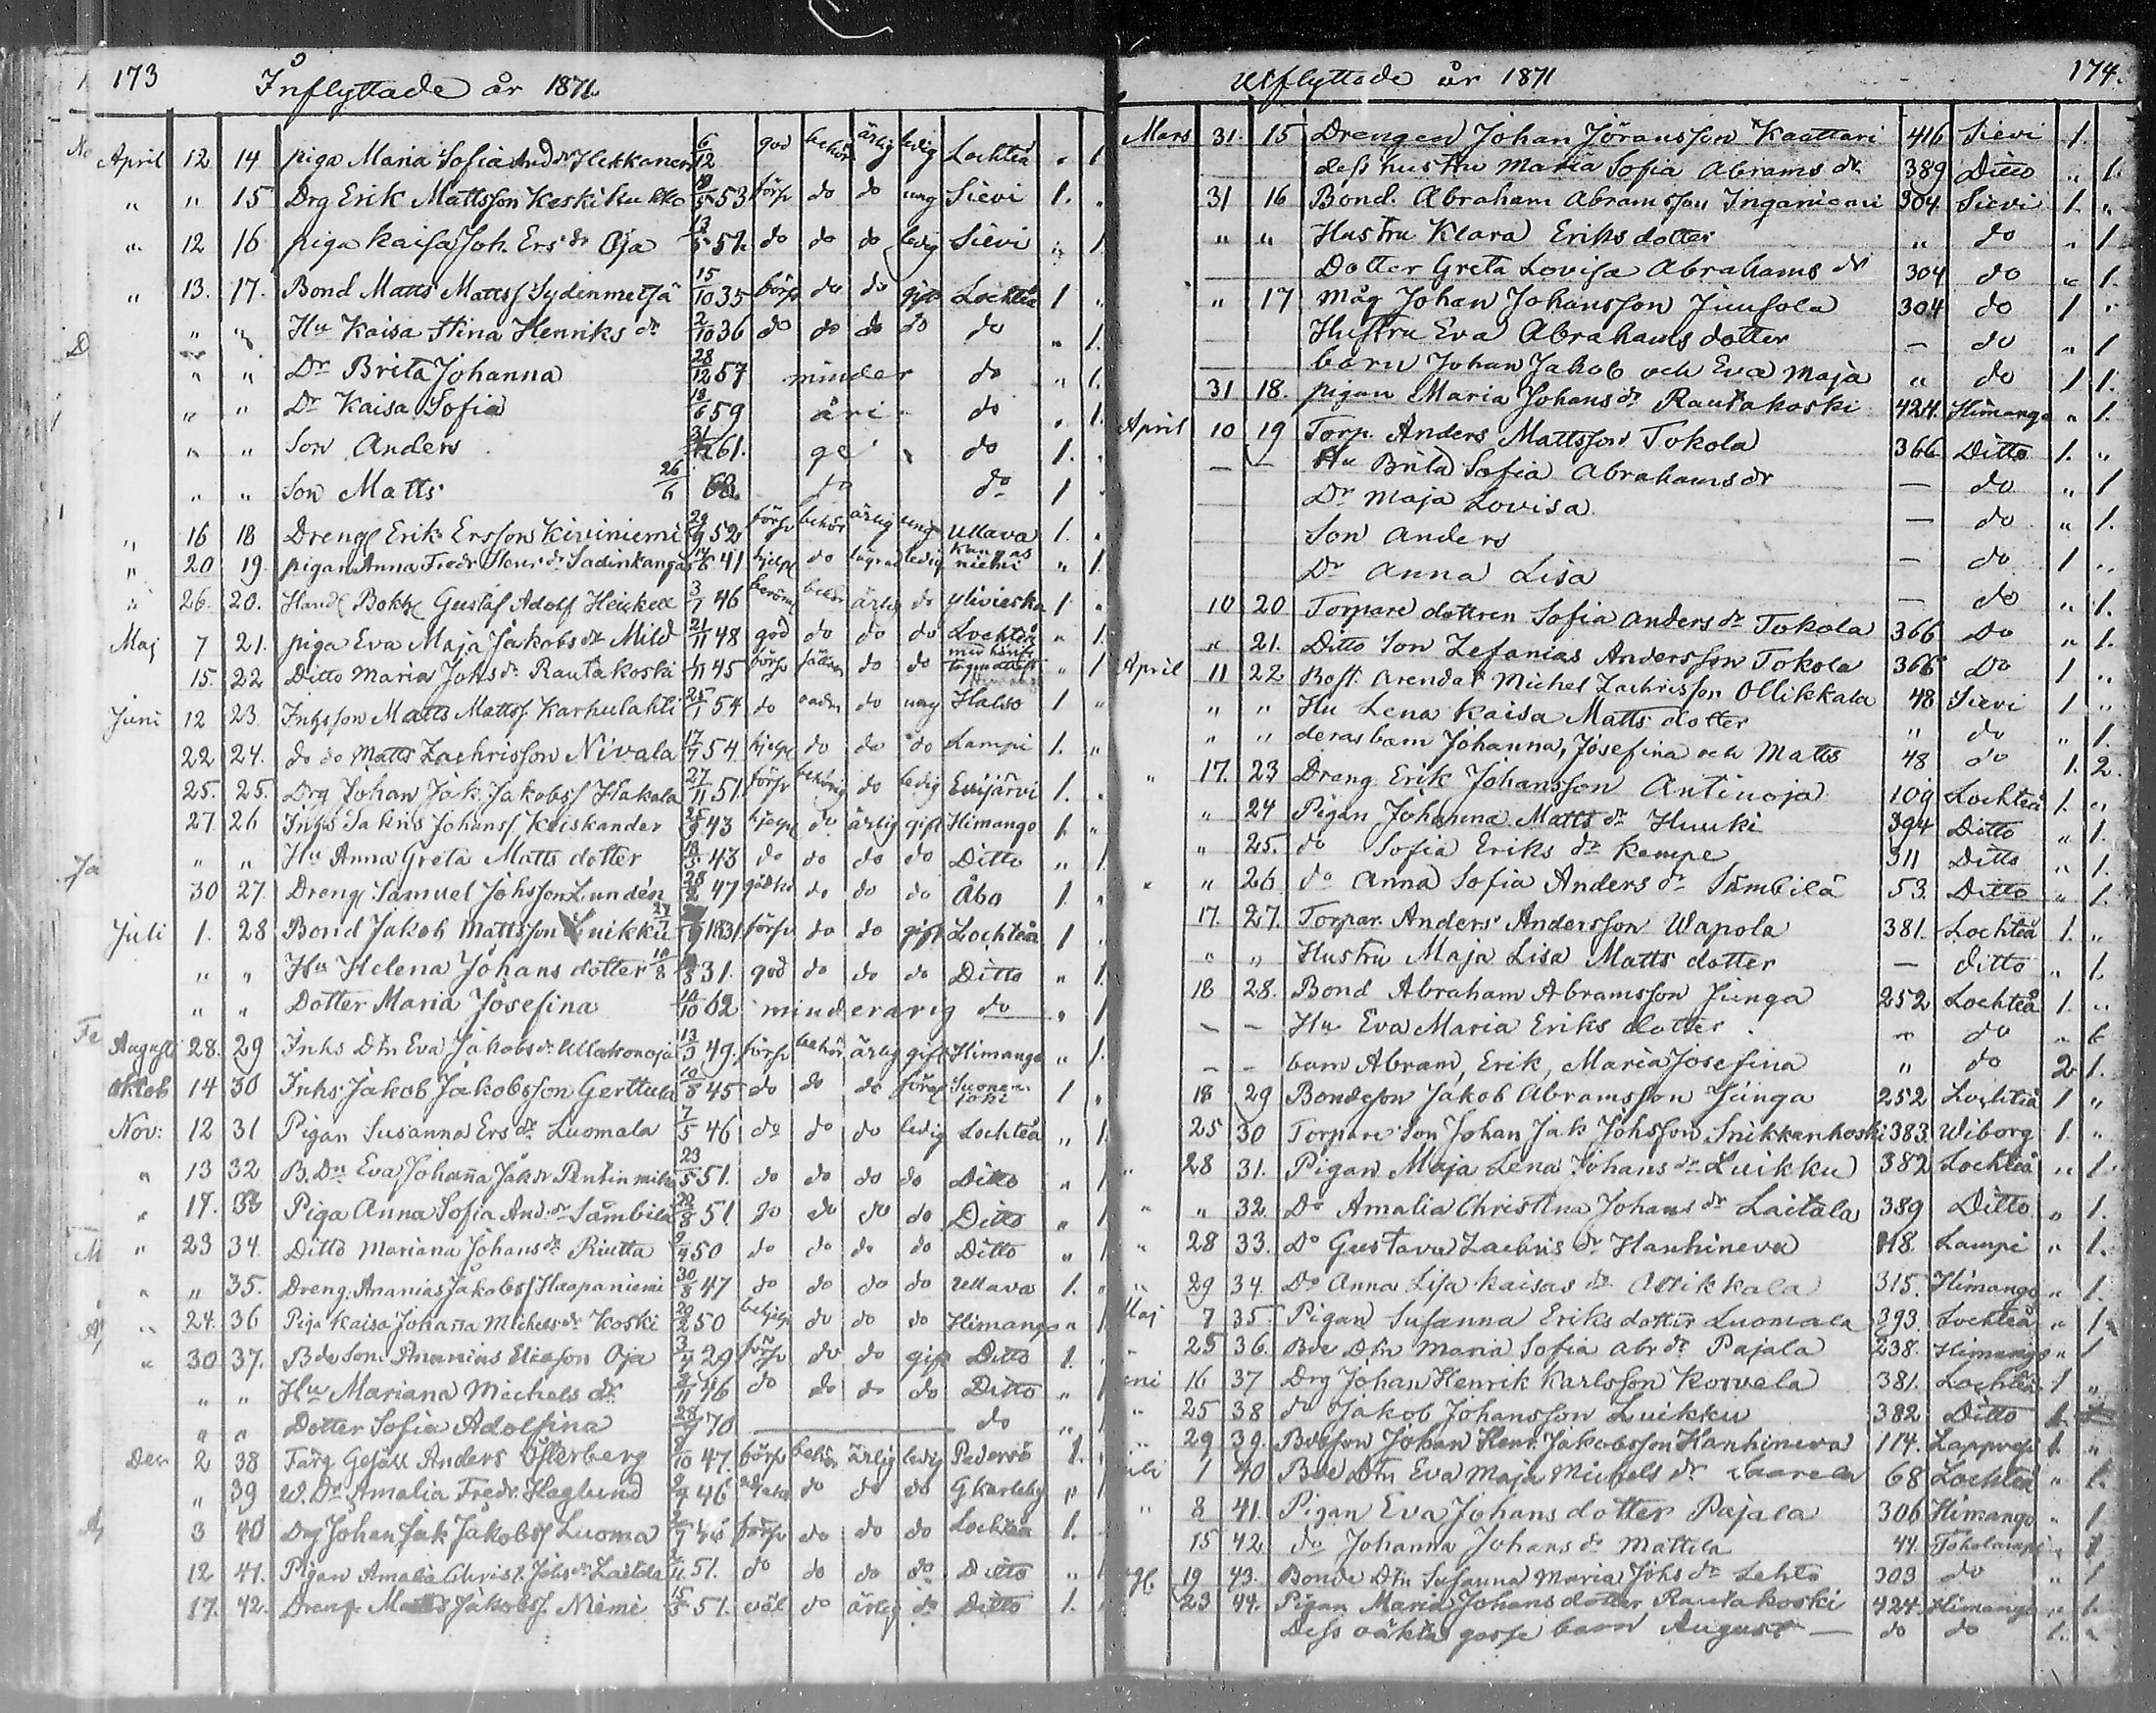 173 Inflyttade år 1871.
April 12 14 piga Maria Sofia And dr Hekkanen 6/12 god behör ärlig ledig Lochteå " 1
" " 15 Drg Erik Mattsson Keskikukko 53 försv do do ung Sievi 1. "
" 12 16 piga Kaisa Joh. Ers dr Oja 52 do do do ledig Sievi " 1
" 13. 17. Bond Matts Mattss Sydenmetsä 15/10 35 försv do do gift Lochteå 1 "
" " Hu Kaisa Stina Henriks dr 2/10 36 do do do do do " 1.
" " Dr Brita Johanna 28/12 57 minder do " 1.
" " Dr Kaisa Sofia 18/6 59 åri do " 1.
" " Son Anders 61. ge do 1. "
" " Son Matts 26/6 do 1 "
" 16 18 Dreng Erik Ersson Kiviniemi 29/9 52 försv behör ärlig ung Ullava 1. "
" 20 19. pigan Anna Fredr Henr dr Sadinkangas 41 hjelpl do ledig Kangas niemi " 1.
" 26. 20. Handl Bokh Gustaf Adolf Heickell 3/7 46 beröml behör ärlig do Ylivieska 1 "
Maj 7 21. piga Eva Maja Jakobs dr Mild 21/11 48 god do do do Lochteå " 1.
15. 22 Ditto Maria Johs dr Rautakoski 45 försv sällan do do " 1
Juni 12 23 Inhsson Matts Mattss. Karhulahti 25/1 54 do do ung Halso 1 "
22 24. do do Matts Zachrisson Nivala 17/7 54 hjelpl do do do Lampi 1. "
25. 25. Drg Johan Jak Jakobss Hakala 27/11 51. försv behörig do ledig Evijärvi 1. "
27 26 Inhs Sakris Johanss Keiskander 25/9 43 hjelpl do ärlig gift Himango 1. "
" " Hu Anna Greta Matts dotter 18/5 43 do do do do Ditto " 1
30 27. Dreng Samuel Johsson Lundén 28/2 47 do do do Åbo 1. "
Juli 1. 28 Bond Jakob Mattsson Luikku 1831. försv do do gift Lochteå 1 "
" " Hu Helena Johans dotter 10/8 31. god do do do Ditto " 1
" " Dotter Maria Josefina 62 minderårig do " 1
Augusti 28. 29 Inhs Dtn Eva Jakobs dr Ullakonoja 13/3 49. försv behör ärlig gift Himango " 1.
Oktob 14 30 Inhs Jakob Jakobsson Gerttula 10/8 45 do do do Suonenjoki 1 "
Nov: 12 31 Pigan Susanna Ers dr Luomala 7/5 46 do do do ledig Lochteå " 1
" 13 32 B. Dn Eva Johanna Jak dr Pentinmäki 23/5 51. do do do do Ditto " 1
" 17. 33 Piga Anna Sofia And. dr Såmbilä 20/8 51 do do do do Ditto " 1
" 23 34. Ditto Mariana Johans dr Riutta 50 do do do do Ditto " 1
" " 35. Dreng. Ananias Jakobss Haapaniemi 30/8 47 do do do do Ullava 1. "
" 24. 36 Piga Kaisa Johanna Michels dr Koski 50 do do do Himango " 1
" 30 37. Bde Son. Ananias Eliasson Oja 29 försv do do gift Ditto 1. "
" " Hu Mariana Michels dr 46 do do do do Ditto " 1
" " Dotter Sofia Adolfina 70 do " 1
Dec 2 38 Färg Gesäll Anders Österberg 47. försv behör ärlig ledig Pedersö 1. "
" 39 W. Dr Amalia Fredr. Haglund 46 do do do G Karleby " 1
3 40 Drg Johan Jak Jakobss Luoma försv do do do Lochteå 1.
12 41. Pigan Amalia Christ. Johs dr Laitala 51. do do do do Ditto " 1
17. 42. Dreng. Matts Jakobss. Niemi 15/5 51. väl do ärlig do Ditto 1. "
Utflyttade år 1871 174.
Mars 31. 15 Drengen Johan Jöransson Kaattari 416 Sievi 1.
dess hustru Maria Sofia Abrams dr 389 Ditto " 1.
31 16 Bond. Abraham Abramsson Inganiemi 304 Sievi 1. "
" " Hustru Klara Eriksdotter " do " 1
Dotter Greta Lovisa Abrahams dr 304 do " 1.
" 17 Måg Johan Johansson Juusola 304 do 1 "
Hustru Eva Abrahamsdotter — do " 1
barn Johan Jakob och Eva Maja " do 1 1.
31 18. pigan Maria Johans dr Rautakoski 424. Himango " 1.
April 10 19 Torp. Anders Mattsson Tokola 366 Ditto 1. "
— — Hu Brita Sofia Abrahamsdr — do " 1
Dr Maja Lovisa — do " 1.
Son Anders — do 1 "
Dr Anna Lisa — do " 1.
10 20 Torpare dottren Sofia Anders dr Tokola 366 Do " 1.
" 21. Ditto Son Zefanias Andersson Tokola 366 Do 1 "
April 11 22 Bost. Arendat Michel Zachrisson Ollikkala 48 Sievi 1 "
" " Hu Lena Kaisa Matts dotter " do " 1.
" " deras barn Johanna, Josefina och Matts 48 do 1. 2.
" 17. 23 Dreng Erik Johansson Antinoja 109 Lochteå 1. "
" 24 Pigan Johanna Matts dr Huuki 394 Ditto " 1.
" 25. do Sofia Eriks dr Kempe 311 Ditto " 1.
" " 26 do Anna Sofia Anders dr Såmbilä 53. Ditto " 1.
17. 27. Torpar. Anders Andersson Wapola 381. Lochteå 1. "
" " Hustru Maja Lisa Matts dotter — ditto " 1.
18 28. Bond Abraham Abramsson Junga 252 Lochteå 1. "
— — Hu Eva Maria Eriks dotter " do "
— — barn Abram, Erik, Maria Josefina " do 2 1.
18 29 Bondeson Jakob Abramsson Junga 252 Lochteå 1 "
25 30 Torpare Son Johan Jak Johsson Snikkarikoski 383. Wiborg 1. "
" 28 31. Pigan Maja Lena Johans dr Luikku 382 Lochteå " 1
" " 32. Do Amalia Christina Johans dr Laitala 389 Ditto " 1.
" 28 33. Do Gustava Zachris dr Hanhineva 118. Lampi " 1.
" 29 34. Do Anna Lisa Kaisas dr Ollikkala 315. Himango " 1.
Maj 7 35 Pigan Susanna Eriks dotter Luomala 393. Lochteå " 1
" 25 36. Bde Dtn Maria Sofia Abr dr Pajala 238. Himango " 1
uni 16 37 Drg Johan Henrik Karlsson Korvela 381. Lochteå 1 "
" 25 38 do Jakob Johansson Luikku 382 Ditto 1.
" 29 39. Bdesson Johan Henr. Jakobsson Hanhineva 114. Lappvesi 1. "
uli 1 40 Bde Dtn Eva Maja Michels dr Saarela 68 Lochteå " 1.
" 8 41. Pigan Eva Johans dotter Pajala 306 Himango " 1
15 42. do Johanna Johans dr Mattila 44. Toholampi " 1
ugl. 19 43. Bonde Dtn Susanna Maria Johs dr Lehto 303 do " 1
23 44. Pigan Maria Johans dotter Rautakoski 424. Himango " 1.
Dess oäkta gosse barn August — do do 1. "